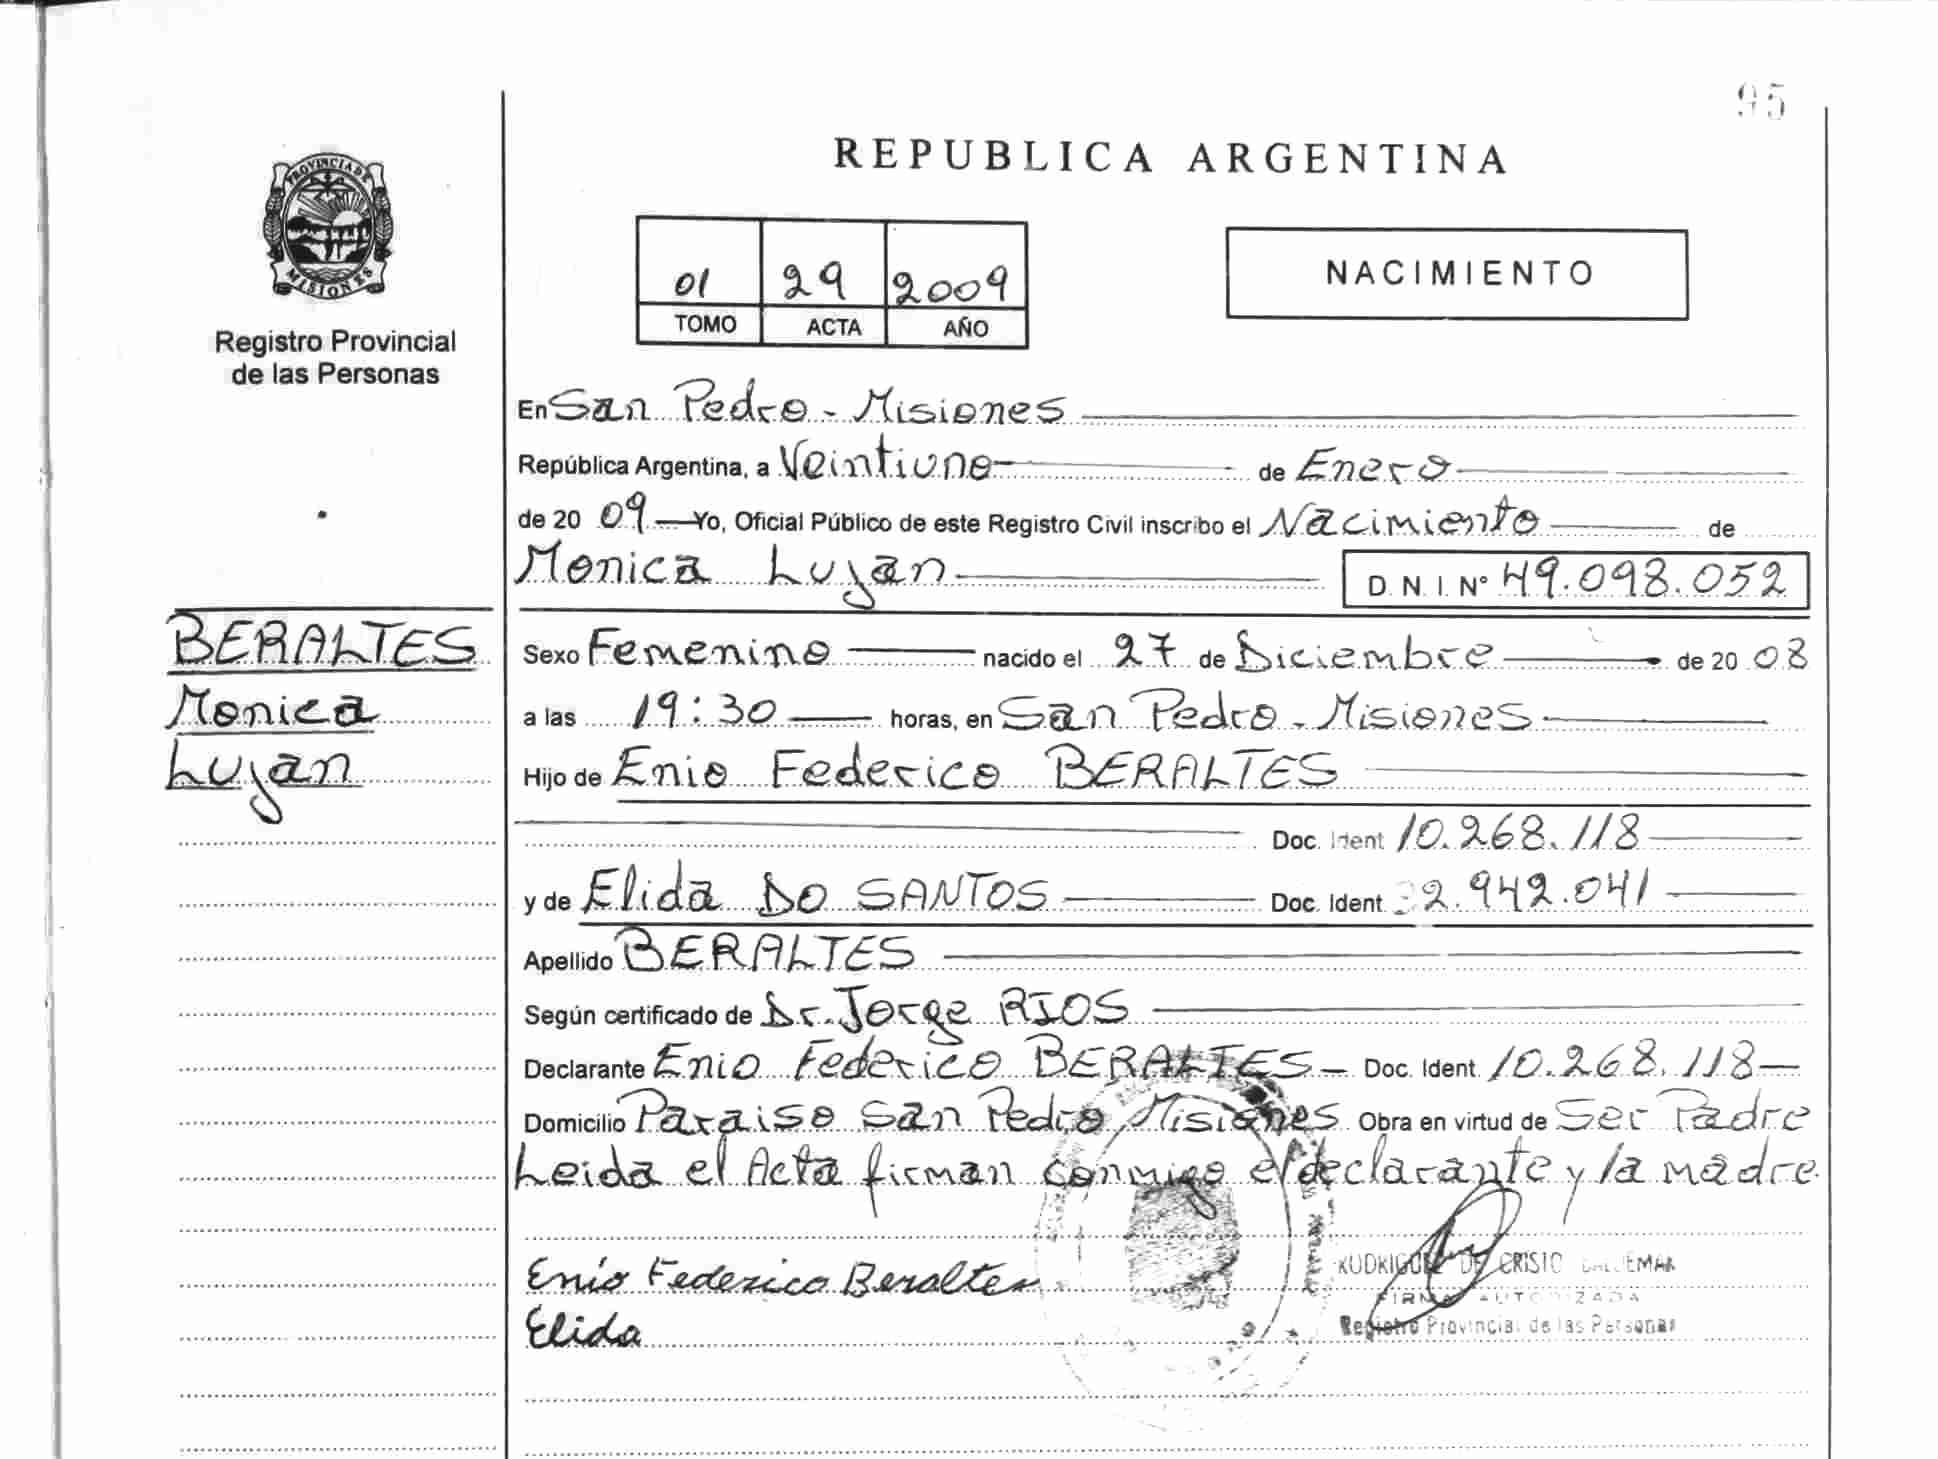 95
REPUBLICA ARGENTINA
PROVINCIA DE
MISIONES
Registro Provincial
de las Personas
01 29 2009
TOMO ACTA AÑO
NACIMIENTO
En San Pedro - Misiones
República Argentina, a Veintiuno de Enero
de 20 09 Yo, Oficial Público de este Registro Civil inscribo el Nacimiento de
Monica Lujan D.N.I. N° 49.098.052
BERALTES
Monica
Lujan
Sexo Femenino nacido el 27 de Diciembre de 20 08
a las 19:30 horas, en San Pedro - Misiones
Hijo de Enio Federico BERALTES
Doc. Ident 10.268.118
y de Elida DO SANTOS Doc. Ident 2.942.041
Apellido BERALTES
Según certificado de Dr. Jorge RIOS
Declarante Enio Federico BERALTES - Doc. Ident. 10.268.118
Domicilio Paraiso San Pedro Misiones Obra en virtud de Ser Padre
Leida el Acta firman conmigo el declarante y la madre
Enio Federico Beraltes
Elida
DE CRISTO
FIRMA AUTORIZADA
Registro Provincial de las Personas